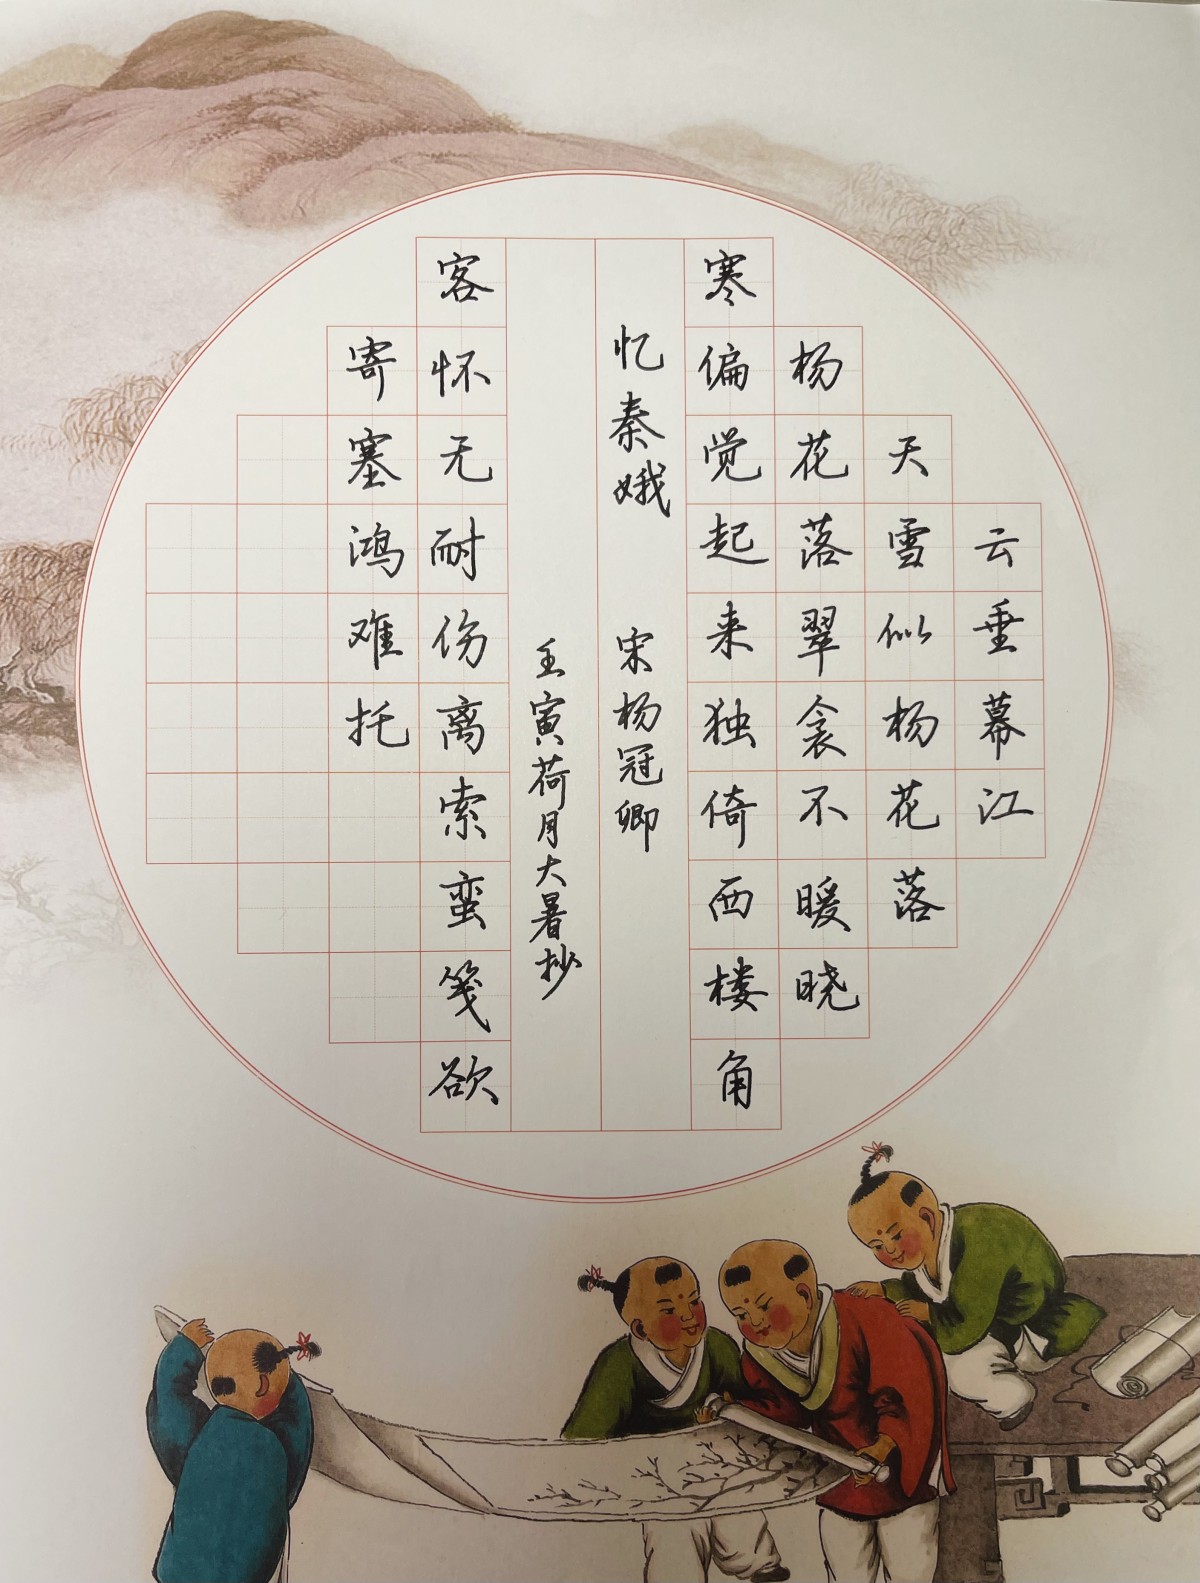 云垂幕江
天雪似杨花落
杨花落翠衾不暖晓
寒偏觉起来独倚西楼角
忆秦娥 宋杨冠卿
壬寅荷月大暑抄
客怀无耐伤离索蛮笺欲
寄塞鸿难托